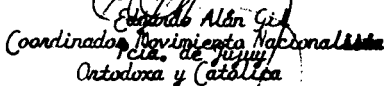 Edgardo Alán Gil
Coordinador Movimiento Nacionalista
Pcia. de Jujuy
Ortodoxa y Católica